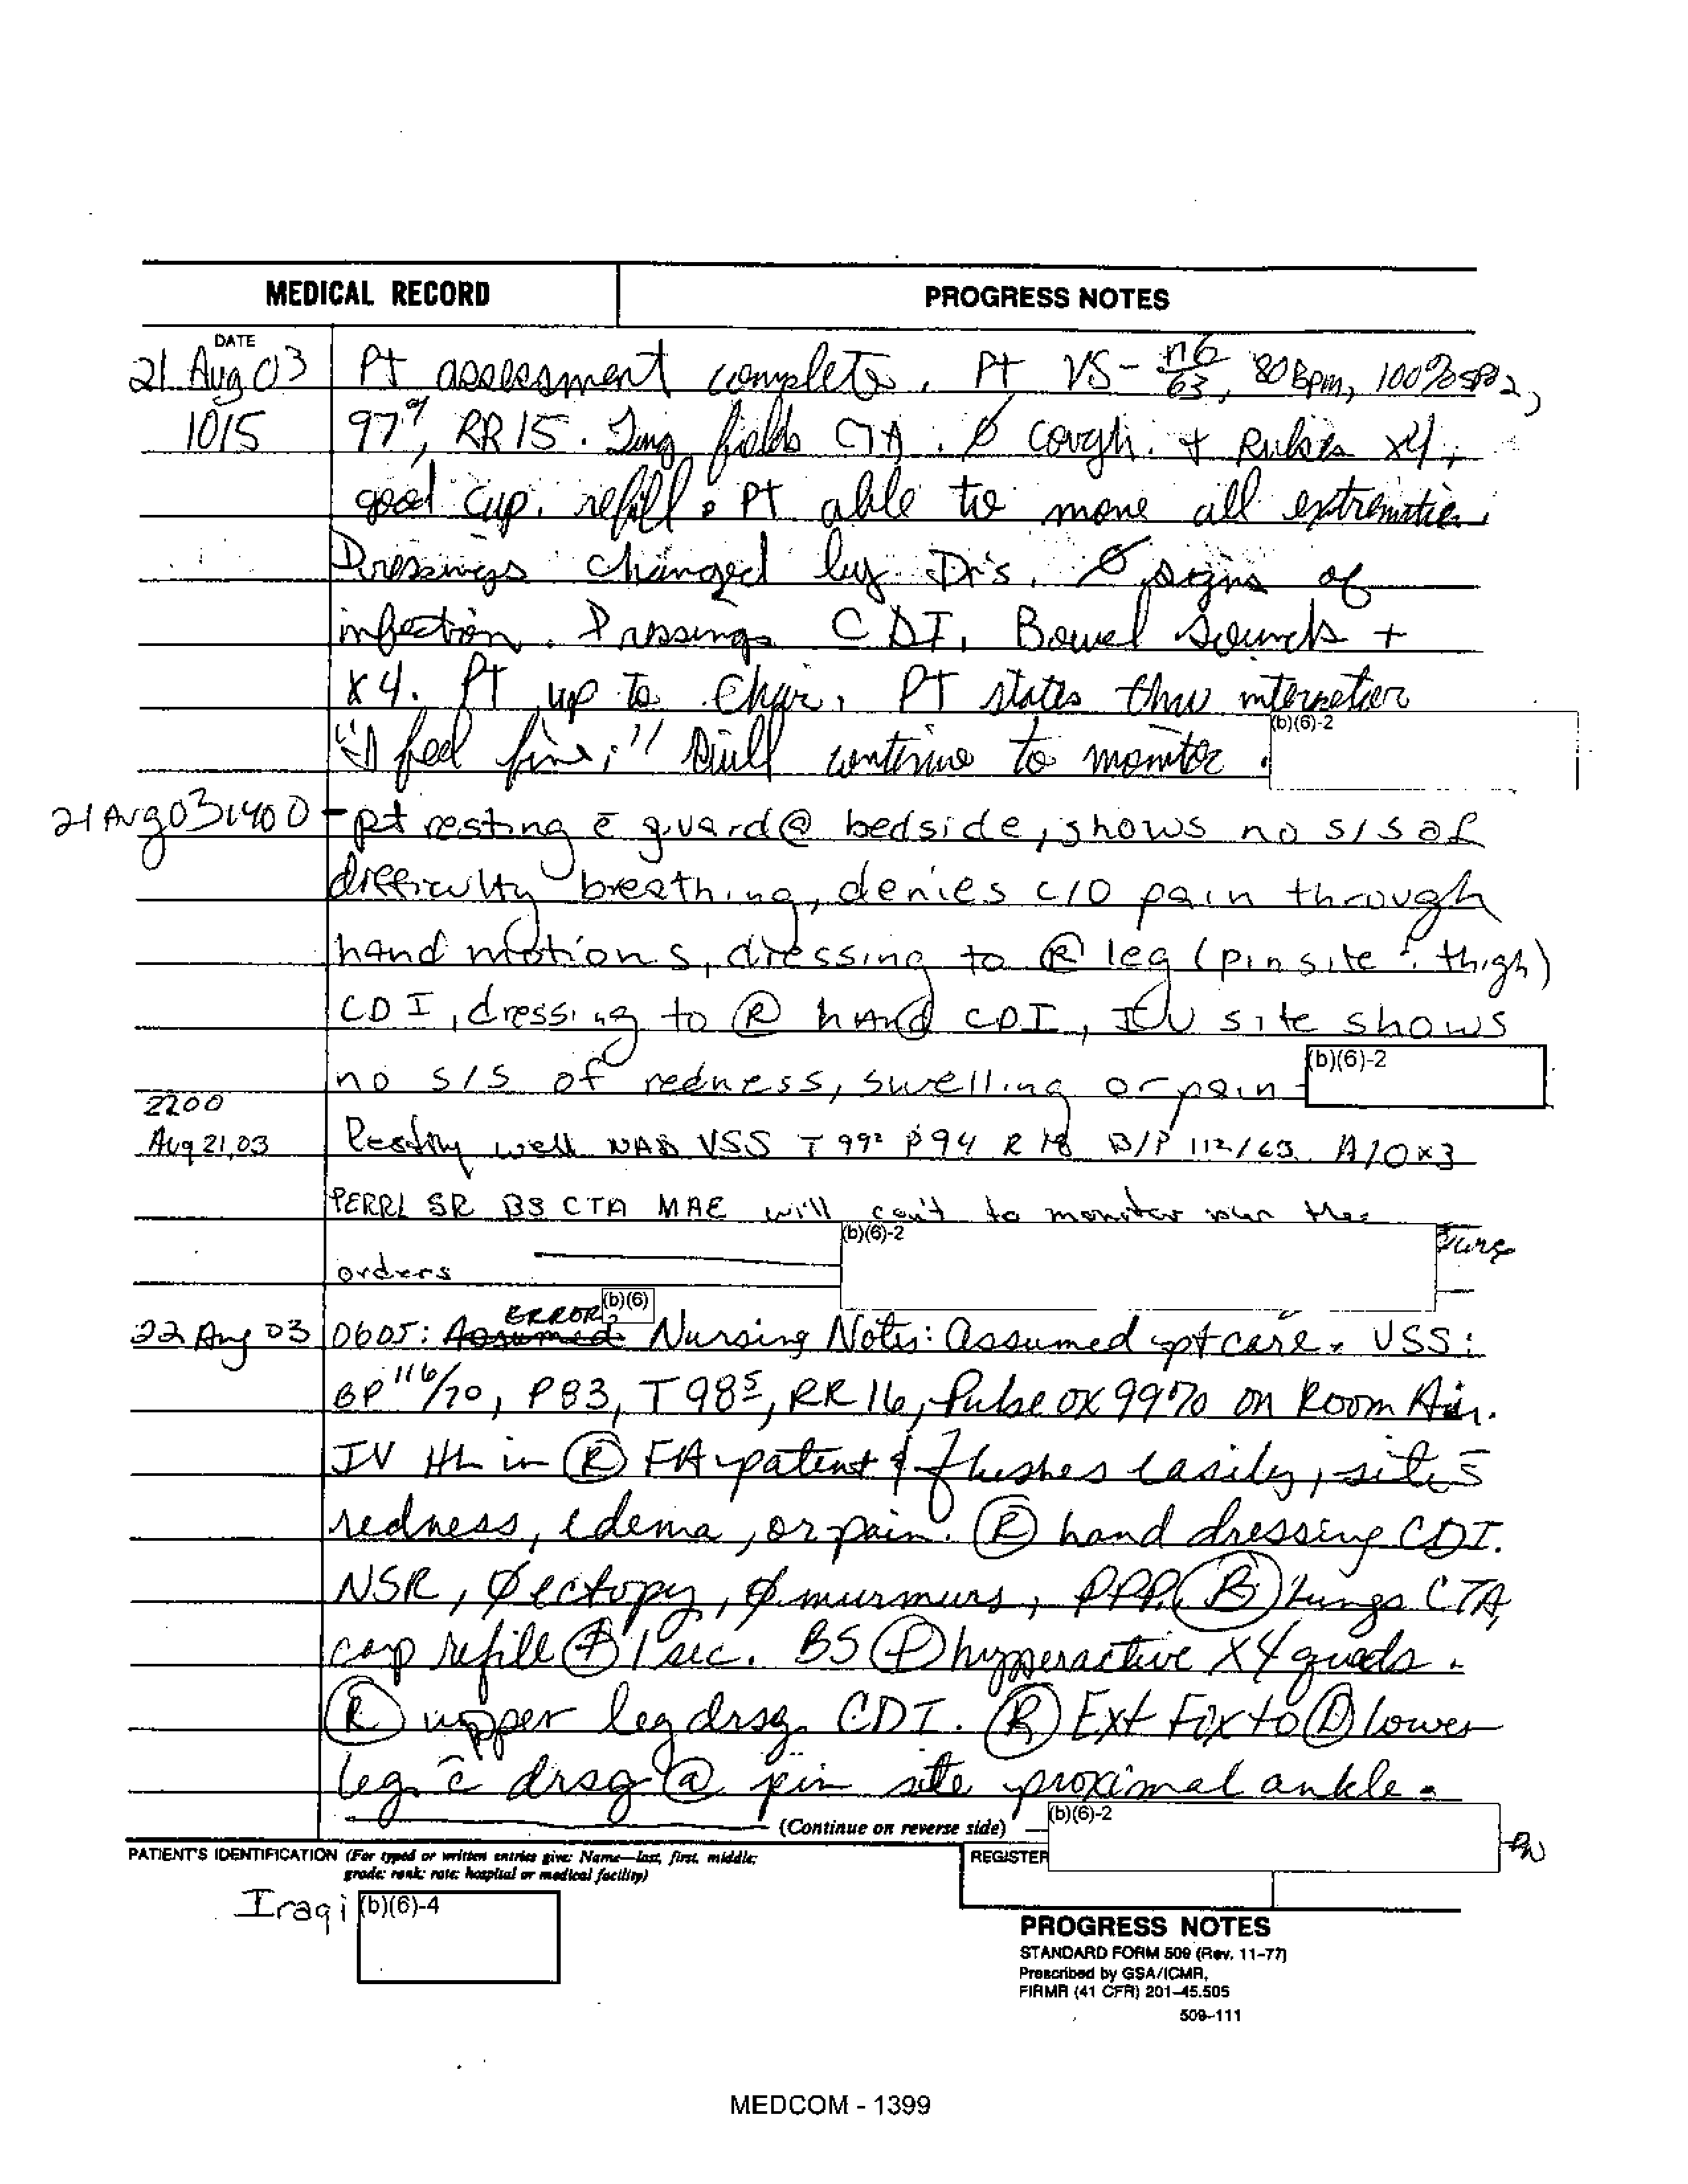 MEDICAL RECORD
PROGRESS NOTES
DATE
21 Aug 03 Pt assessment complete. Pt VS- 116/63, 80 Bpm, 100% SPO2,
1015 97⁹, RR 15. Lung fields CTA. Ø cough. + Pulses x4,
good cap. refill. Pt able to move all extremities.
Dressings changed by Dr's. Ø signs of
infection. Dressings CDI. Bowel sounds +
x4. PT up to Chair. PT states thru interpretor
"I feel fine;" Will continue to monitor.
(b)(6)-2
21 Aug 03 1400 - pt resting c̄ guard @ bedside, shows no s/s of
difficulty breathing, denies c/o pain through
hand motions, dressing to Ⓡ leg (pin site & thigh)
CDI, dressing to Ⓡ hand CDI, IV site shows
no s/s of redness, swelling or pain
(b)(6)-2
2200
Aug 21, 03 Resting well NAD VSS T 99² P 94 R 18 B/P 112/63 A/O x3
PERRL SR BS CTA MAE will con't to monitor
orders
(b)(6)-2
ERROR (b)(6)
22 Aug 03 0605: Assumed Nursing Notes: Assumed pt care. VSS:
BP 116/70, P83, T 98⁵, RR 16, Pulse ox 99% on Room Air.
IV HL in Ⓡ FA patent & flushes easily, site s̄
redness, edema, or pain. Ⓡ hand dressing CDI.
NSR, Ø ectopy, Ø murmurs, PPP. Ⓑ Lungs CTA,
cap refill ⊕ 1 sec. BS ⊕ hyperactive X4 quads.
Ⓡ upper leg drsg. CDI. Ⓡ Ext Fix to lower
leg c̄ drsg @ pin site proximal ankle.
(Continue on reverse side)
(b)(6)-2
RN
PATIENT'S IDENTIFICATION (For typed or written entries give: Name—last, first, middle;
grade; rank; rate; hospital or medical facility)
REGISTER
Iraqi (b)(6)-4
PROGRESS NOTES
STANDARD FORM 509 (Rev. 11-77)
Prescribed by GSA/ICMR,
FIRMR (41 CFR) 201-45.505
509-111
MEDCOM - 1399